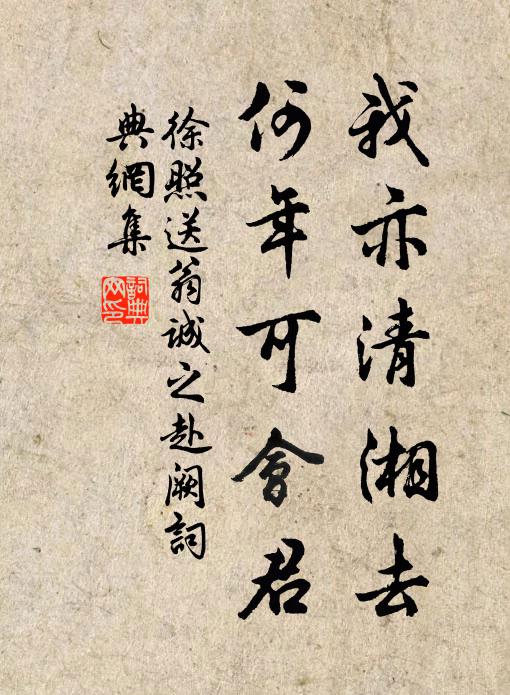 我亦清湘去
何年可會君
徐照送翁誠之赴闕詞
典網集
詞典
网印